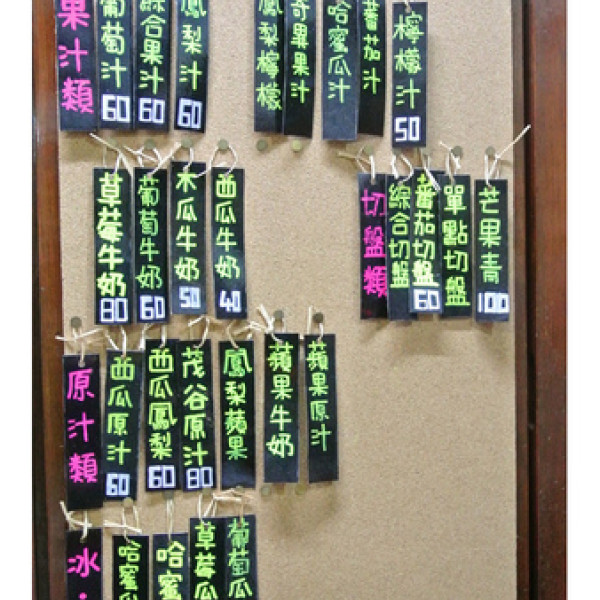 果汁類
葡萄汁 60
綜合果汁 60
鳳梨汁 60
鳳梨檸檬
奇果果汁
哈蜜瓜汁
蕃茄汁
檸檬汁 50
草莓牛奶 80
葡萄牛奶 60
木瓜牛奶 50
西瓜牛奶 40
切盤類
綜合切盤
蕃茄切盤 60
單點切盤
芒果青 100
原汁類
西瓜原汁 60
西瓜鳳梨 60
茂谷原汁 80
鳳梨蘋果
蘋果牛奶
蘋果原汁
冰
哈蜜瓜
哈蜜
草莓瓜
葡萄瓜